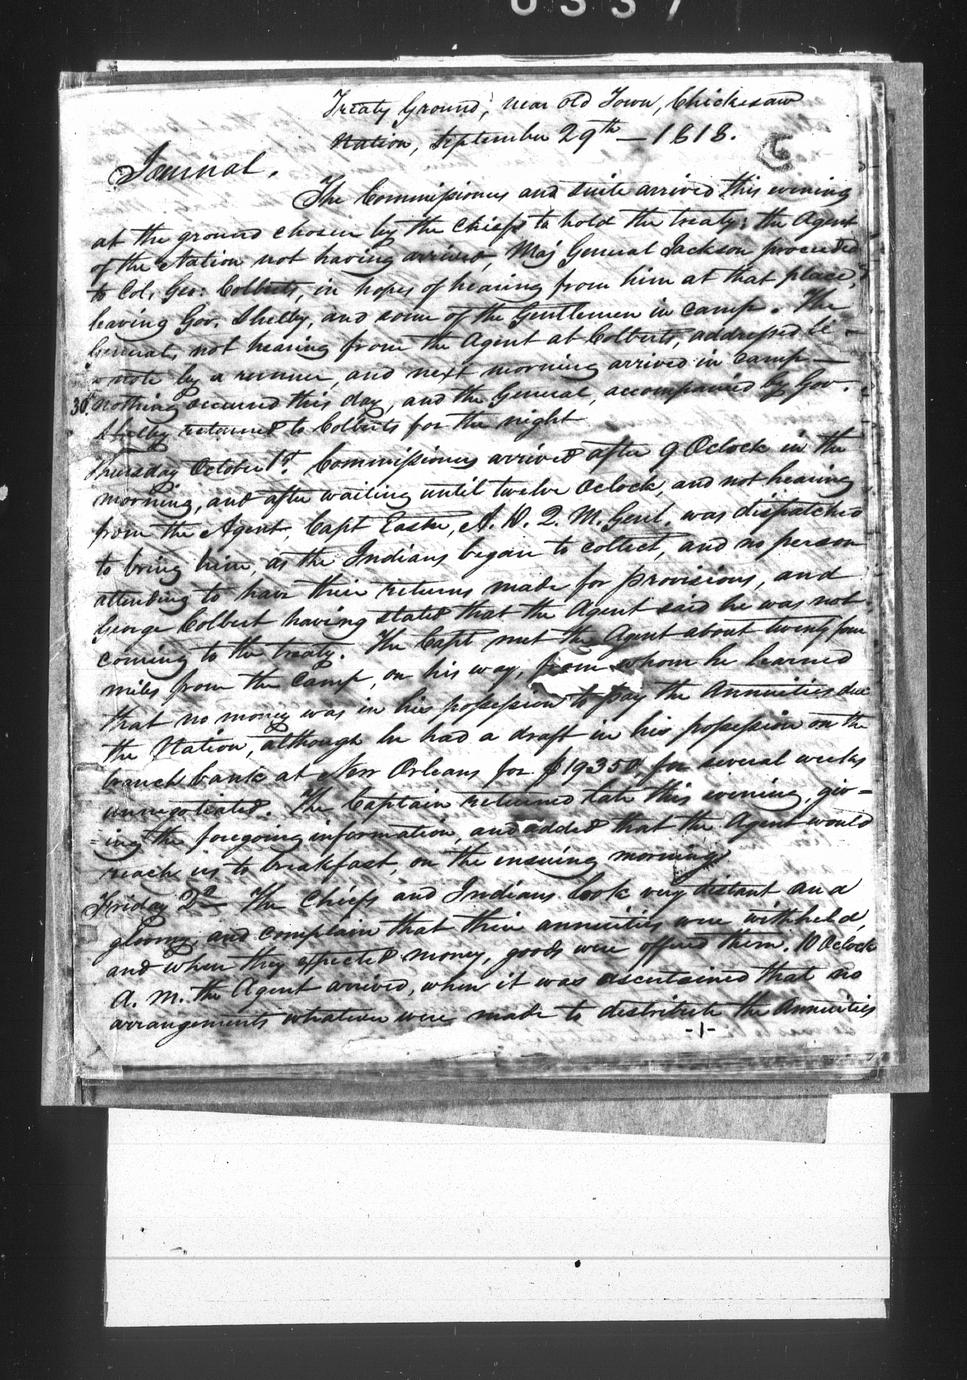 0337
Treaty Ground, near Old Town, Chickesaw
Nation, September 29th — 1818.
C
Journal.
The Commissioners and suite arrived this evening
at the ground chosen by the Chiefs to hold the treaty; the Agent
of the Nation not having arrived, Maj General Jackson proceeded
to Col. Geo: Colberts, in hopes of hearing from him at that place,
leaving Gov. Shelby, and some of the Gentlemen in camp. The
General, not hearing from the Agent at Colberts, addressed
a note by a runner, and next morning arrived in Camp —
30th nothing occured this day, and the General, accompanied by Gov.
Shelby returned to Colberts for the night
Thursday October 1st. Commissioners arrived after 9 Oclock in the
morning, and after waiting until twelve Oclock, and not hearing
from the Agent, Capt Easter, A. D. Q. M. Genl. was dispatched
to bring him, as the Indians began to collect, and no person
attending to have their returns made for provisions, and
George Colbert having stated that the Agent said he was not
coming to the treaty. The Capt met the Agent about twenty four
miles from the Camp, on his way, from whom he learned
that no money was in his possession to pay the Annuities due
the Nation, although he had a draft in his possession on the
branch bank at New Orleans for $19350, for several weeks
unnegotiated. The Captain returned late this evening, giv=
=ing the foregoing information, and added that the Agent would
reach us to breakfast, on the ensuing morning
Friday 2d The Chiefs and Indians look very distant and
gloomy, and complain that their annuities were withheld,
and when they expected money, goods were offered them. 10 Oclock
A. M. the Agent arrived, when it was ascertained that no
arrangements whatever were made to distribute the Annuities
-1-